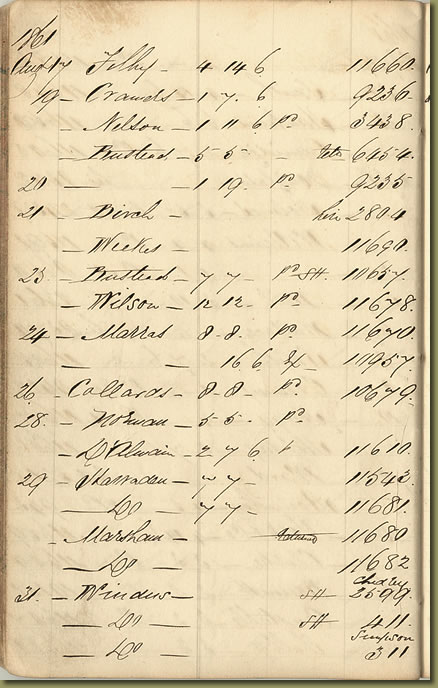 1861
Aug 17 Filby - 4 14 6 11660
19 - Crawds - 1 7 6 9236
- Nelson - 1 11 6 pd 3438
- Bustead - 5 5 - 6454
20 - — - 1 19 - pd 9235
21 - Birch - 2804
- Weekes - 11690
23 - Bustead - 7 7 - pd SH 10657
- Wilson - 12 12 - pd 11678
24 - Marras 8 - 8 - pd 11670
— — 16 6 11957
26 - Collards - 8 - 8 - pd 10679
28 - Norman - 5 5 - pd
- D'Almain - 2 7 6 11610
29 - Harraden - 7 7 - 11543
— Do — 7 7 - 11681
- Marsham - 11680
— Do — 11682
Chidley
31 - Winders - SH 2599
— Do — SH 411
Simpson
— Do — 311